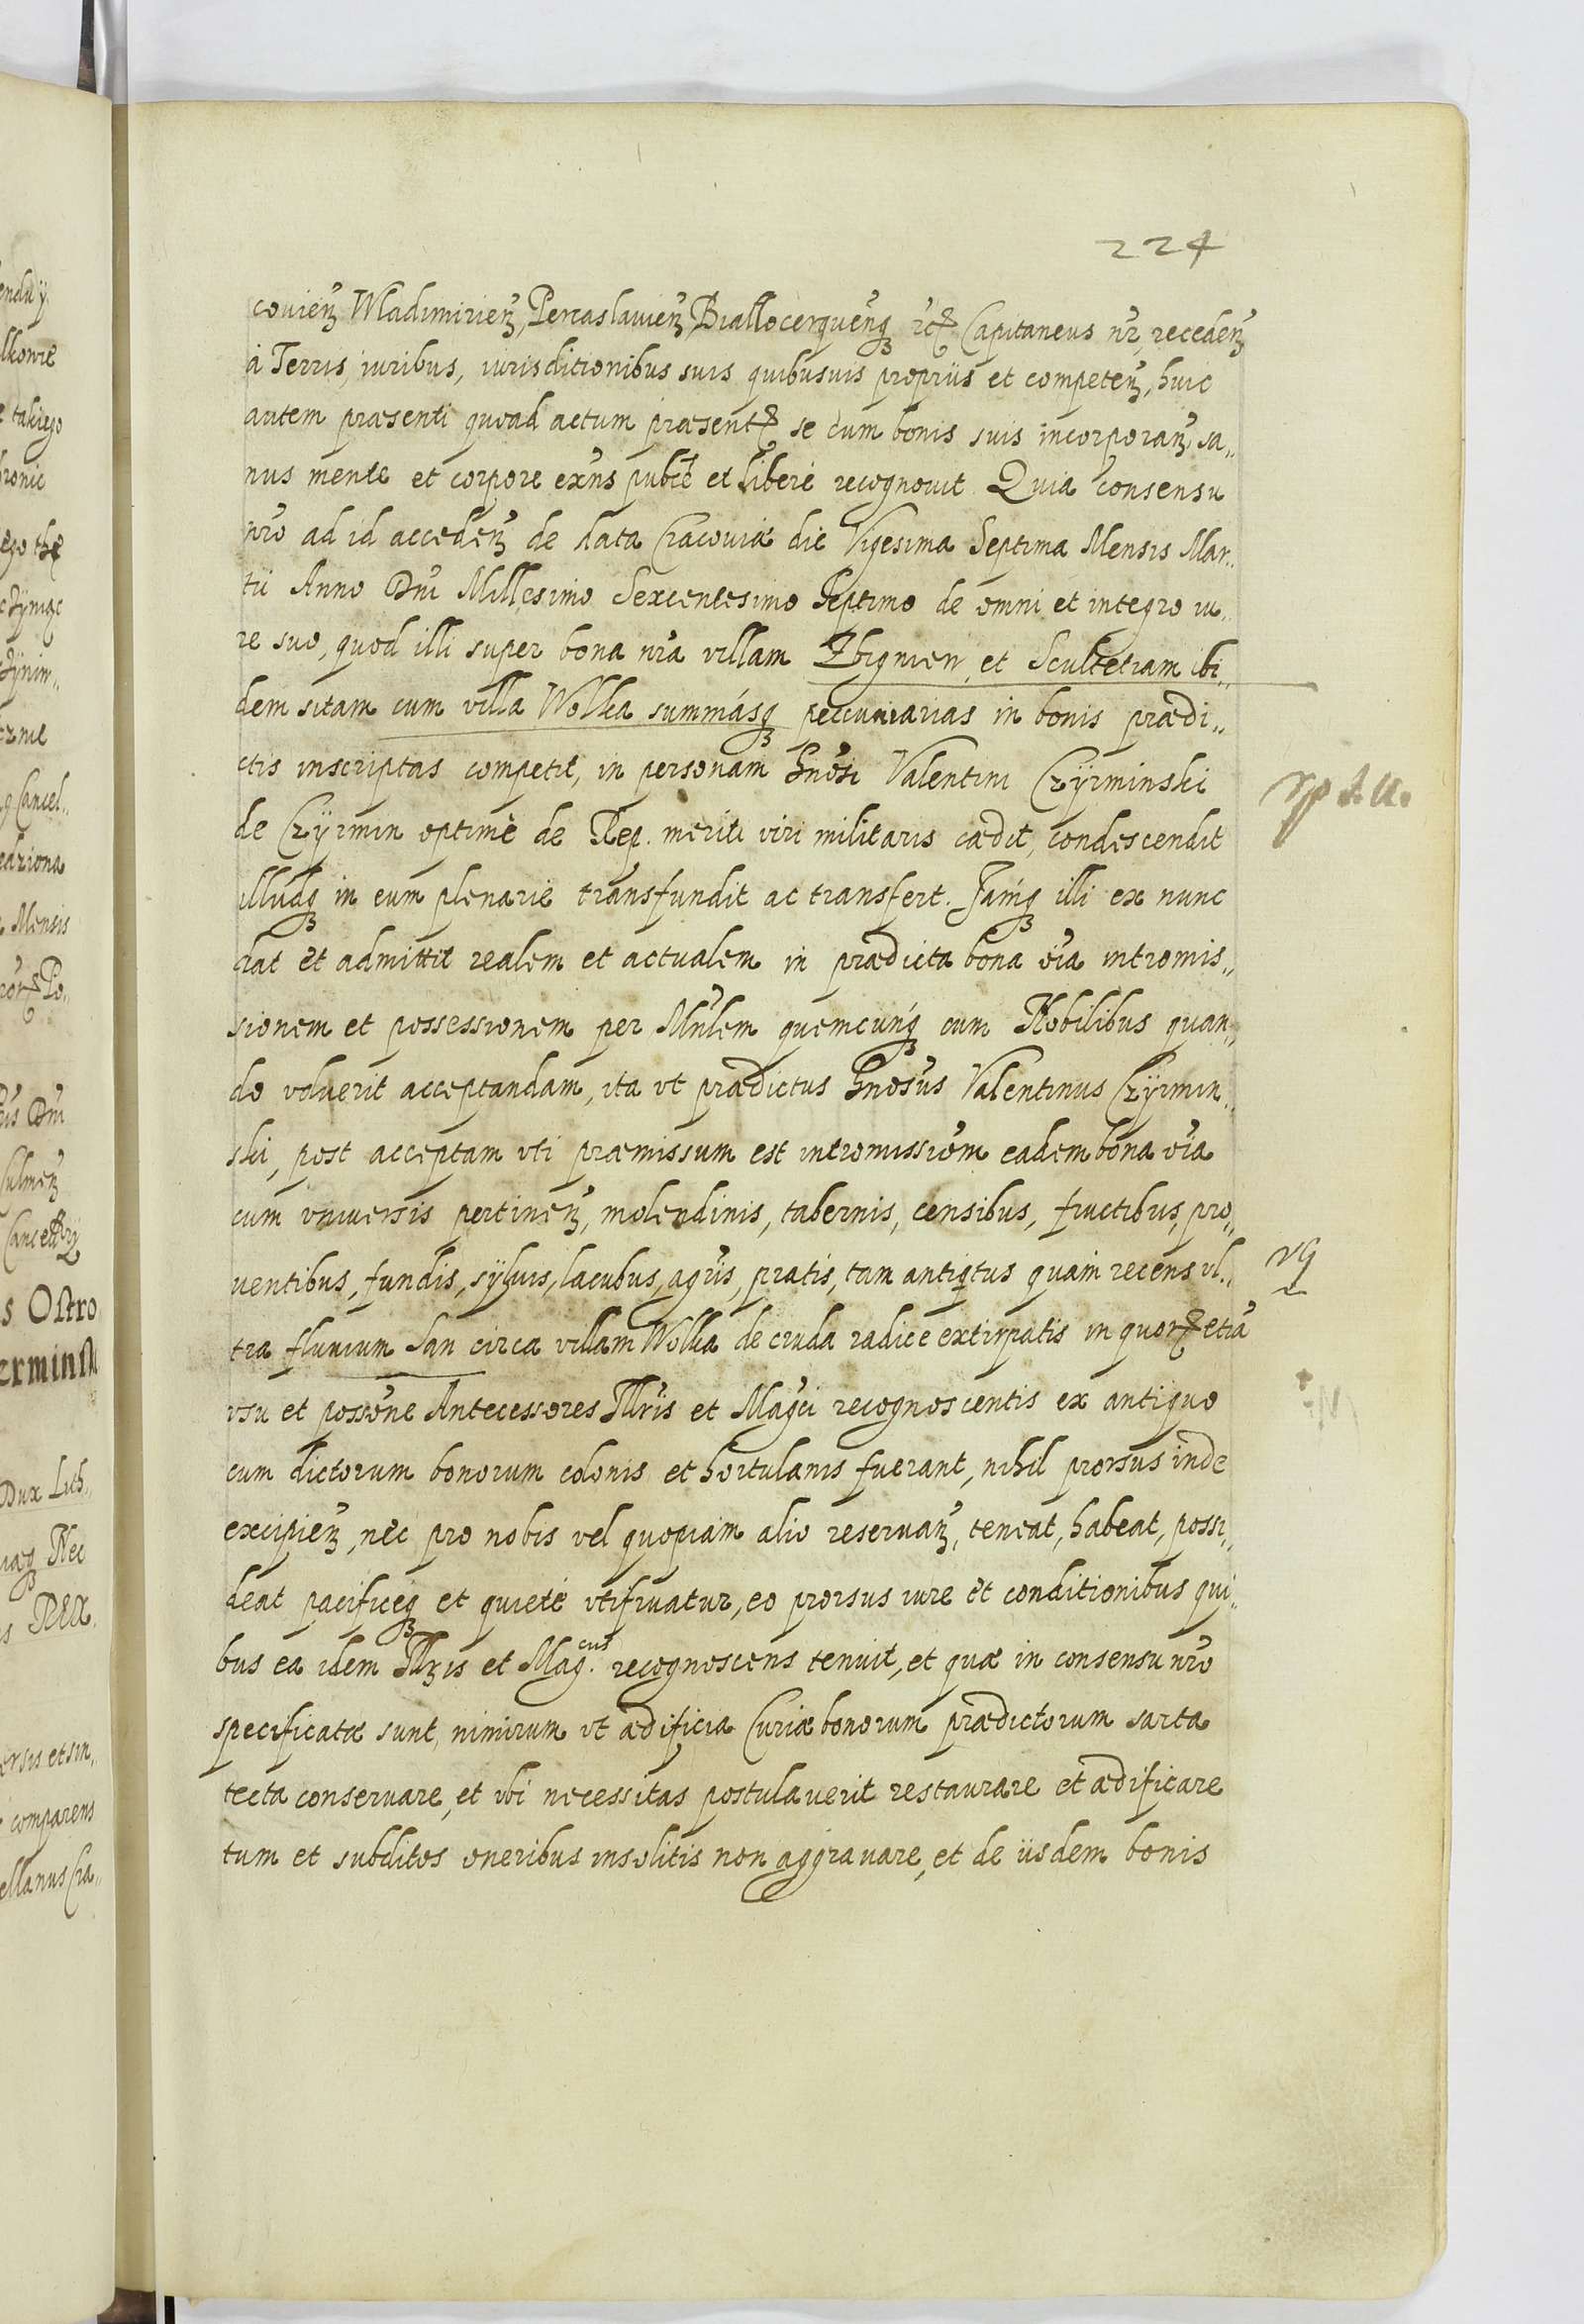 224
couień Wladimirień, Pereaslauień, Biallocerquenq3 etc Capitaneus nr̄, recedeń
à Terris, iuribus, iurisditionibus suis quibusuis proprijs et competeń, huic
autem præsenti quoad actum præsentē se cum bonis suis incorporań, sa„
nus mente et corpore exns̄ publce et liberè recognouit. Quia consensu
nr̄o ad id accedeń de data Cracouiæ die Vigesima Septima Mensis Mar„
tii Anno Dn̄i Millesimo Sexcentesimo Septimo de omni et integro iu„
re suo, quod illi super bona nr̄a villam Zbigniew, et Scultetiam ibi„
dem sitam cum villa Wolka summásq3 peccuniarias in bonis prædi„
ctis inscriptas competit, in personam Gnōsi Valentini Czÿrminski
de Czÿrmin optimè de Rep. meriti viri militaris cædit, condescendit
illudq3 in eum plenariè transfundit ac transfert. Iamq3 illi ex nunc
dat et admittit realem et actualem in prædicta bona oīa intromis„
sionem et possessionem per Mn̄lem quemcunq3 cum Nobilibus quan„
do voluerit acceptandam, ita vt prædictus Gnōsus Valentinus Czÿrmin„
ski, post acceptam vti præmissum est intromissiōem eadem bona oīa
cum vniuersis pertineń, molendinis, tabernis, censibus, fructibus, pro„
uentibus, fundis, sÿluis, lacubus, agris, pratis, tam antiqtus quam recens vl„
tra fluuium San circa villam Wolka de cruda radice extirpatis in quorꝝ etiā
vsu et possōne Antecessores Illrīs et Magci recognoscentis ex antiquo
cum dictorum bonorum colonis et hortulanis fuerant, nihil prorsus inde
excipień, nec pro nobis vel quopiam alio reseruań, teneat, habeat, possi„
deat pacificeq3 et quietè vtifruatur, eo prorsus iure et conditionibus qui„
bus ea idem Illris et Mag.cus recognoscens tenuit, et quæ in consensu nr̄o
specificatæ sunt, nimirum vt ædificia Curiæ bonorum prædictorum sarta
tecta conseruare, et vbi necessitas postulauerit restaurare et ædificare
tum et subditos oneribus insolitis non aggrauare, et de iisdem bonis